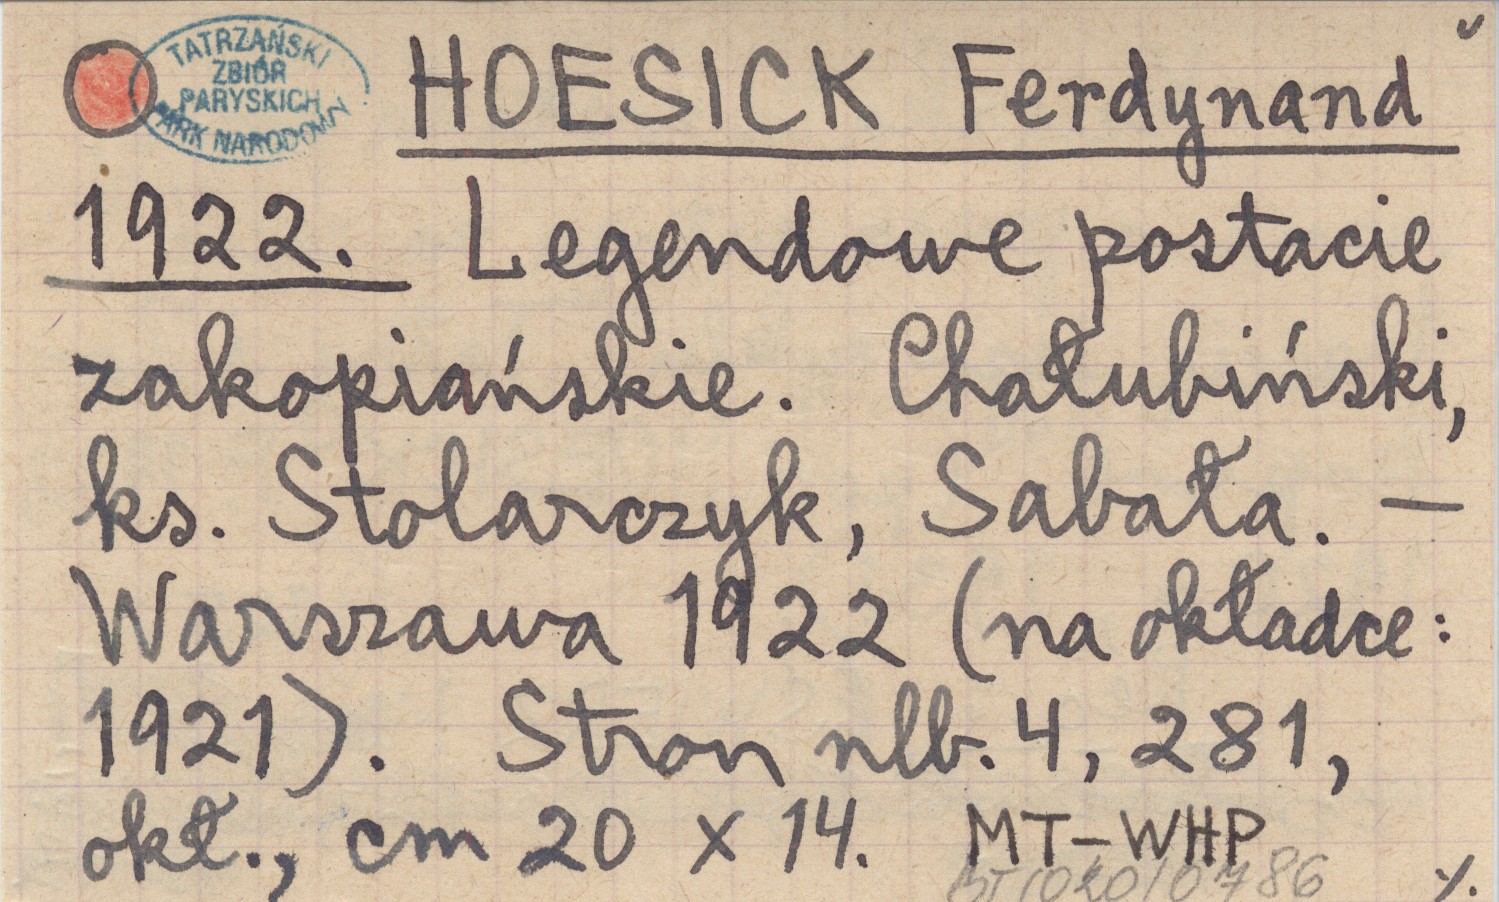 TATRZAŃSKI
ZBIÓR
PARYSKICH
PARK NARODOWY
HOESICK Ferdynand
1922. Legendowe postacie
zakopiańskie. Chałubiński,
ks. Stolarczyk, Sabała. —
Warszawa 1922 (na okładce:
1921). Stron nlb. 4, 281,
okł., cm 20 x 14. MT-WHP
·/.